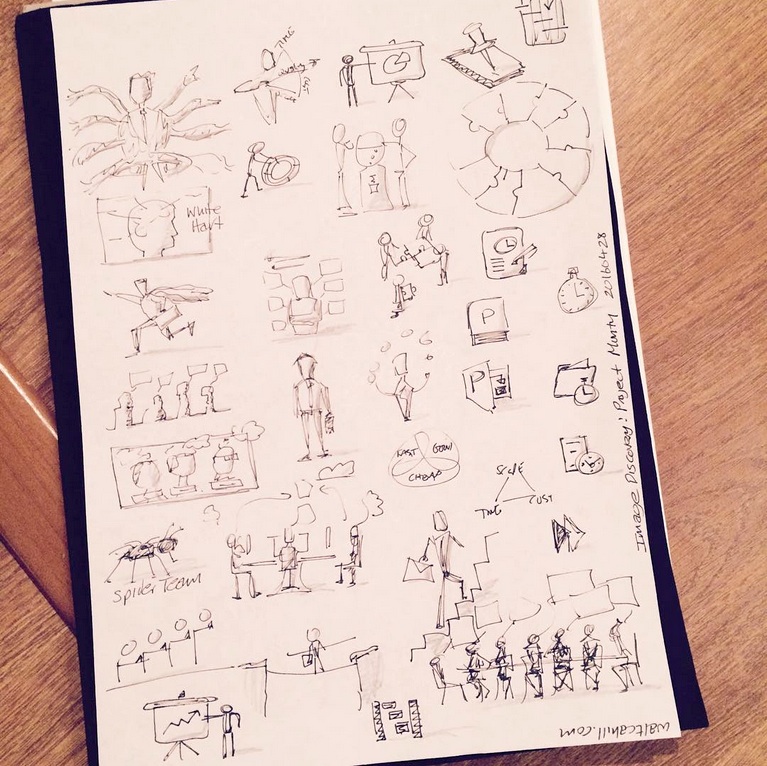 TIME
White
Hart
P
P
FAST GOOD
CHEAP
SCOPE
TIME COST
Spider Team
Image Discovery: Project Mgmt 20160428
waltcahill.com